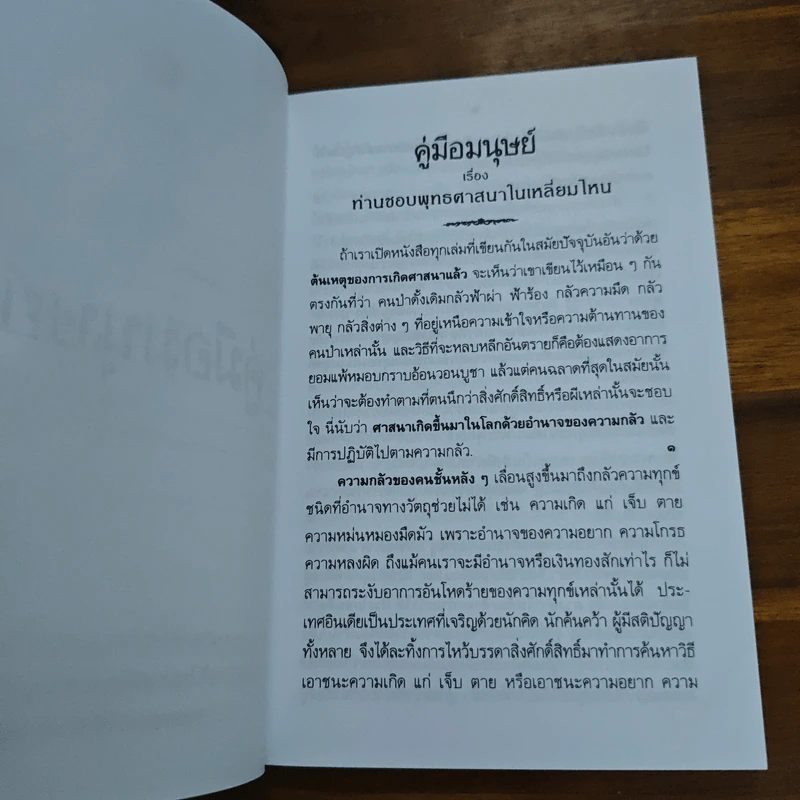 คู่มือมนุษย์
เรื่อง
ท่านชอบพุทธศาสนาในเหลี่ยมไหน
ถ้าเราเปิดหนังสือทุกเล่มที่เขียนกันในสมัยปัจจุบันอันว่าด้วย
ต้นเหตุของการเกิดศาสนาแล้ว จะเห็นว่าเขาเขียนไว้เหมือน ๆ กัน
ตรงกันที่ว่า คนป่าดั้งเดิมกลัวฟ้าผ่า ฟ้าร้อง กลัวความมืด กลัว
พายุ กลัวสิ่งต่าง ๆ ที่อยู่เหนือความเข้าใจหรือความต้านทานของ
คนป่าเหล่านั้น และวิธีที่จะหลบหลีกอันตรายก็คือต้องแสดงอาการ
ยอมแพ้หมอบกราบอ้อนวอนบูชา แล้วแต่คนฉลาดที่สุดในสมัยนั้น
เห็นว่าจะต้องทำตามที่ตนนึกว่าสิ่งศักดิ์สิทธิ์หรือผีเหล่านั้นจะชอบ
ใจ นี่นับว่า ศาสนาเกิดขึ้นมาในโลกด้วยอำนาจของความกลัว และ
มีการปฏิบัติไปตามความกลัว. ๑
ความกลัวของคนชั้นหลัง ๆ เลื่อนสูงขึ้นมาถึงกลัวความทุกข์
ชนิดที่อำนาจทางวัตถุช่วยไม่ได้ เช่น ความเกิด แก่ เจ็บ ตาย
ความหม่นหมองมืดมัว เพราะอำนาจของความอยาก ความโกรธ
ความหลงผิด ถึงแม้คนเราจะมีอำนาจหรือเงินทองสักเท่าไร ก็ไม่
สามารถระงับอาการอันโหดร้ายของความทุกข์เหล่านั้นได้ ประ-
เทศอินเดียเป็นประเทศที่เจริญด้วยนักคิด นักค้นคว้า ผู้มีสติปัญญา
ทั้งหลาย จึงได้ละทิ้งการไหว้บรรดาสิ่งศักดิ์สิทธิ์มาทำการค้นหาวิธี
เอาชนะความเกิด แก่ เจ็บ ตาย หรือเอาชนะความอยาก ความ